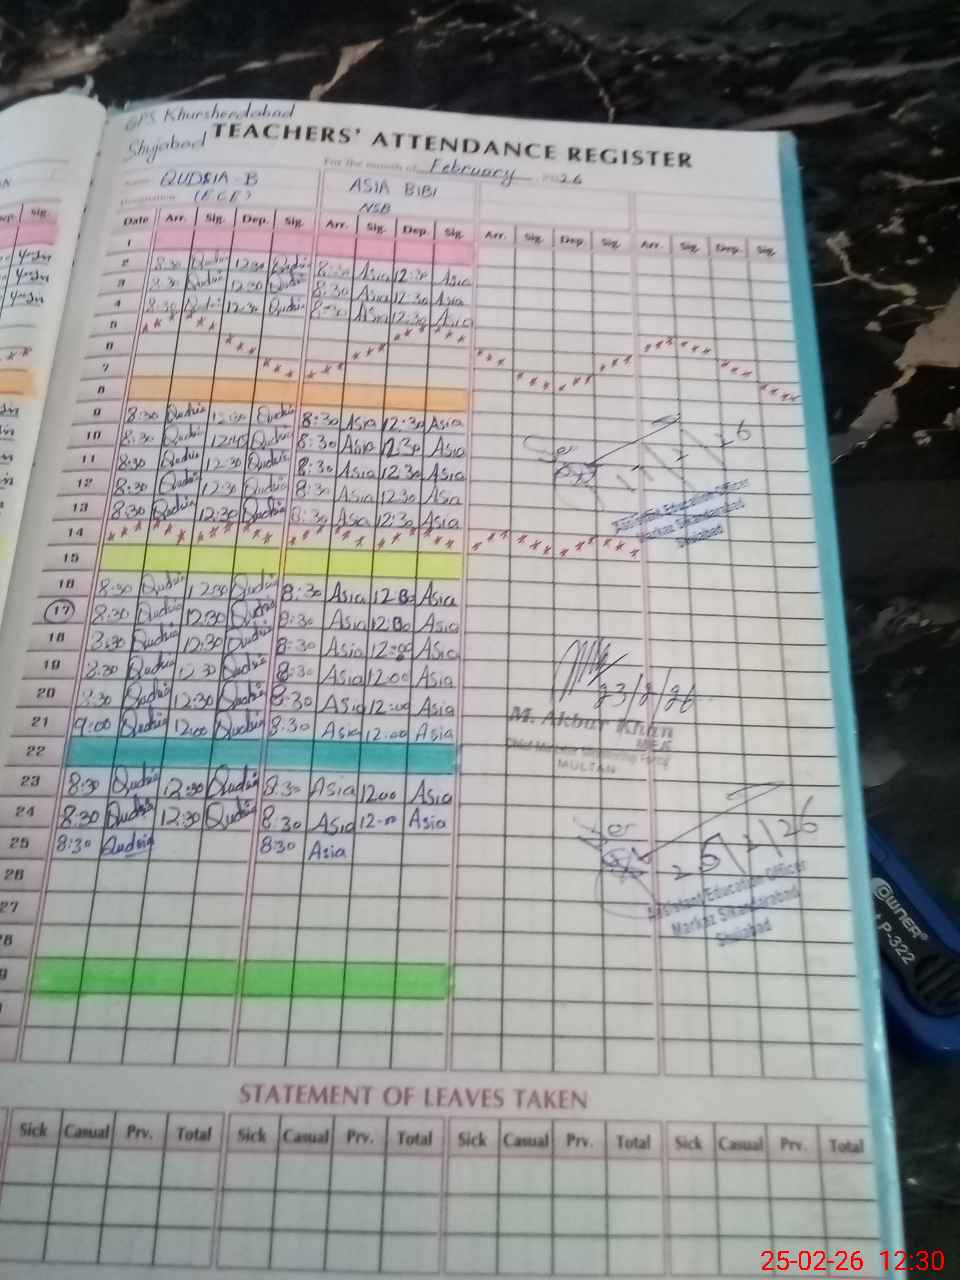 GPS Khursheedabad
Shujabad
TEACHERS' ATTENDANCE REGISTER
For the month of February 2026
QUDSIA-B ASIA BIBI
(ECE) NSB
Date Arr. Sig. Dep. Sig. Arr. Sig. Dep. Sig. Arr. Sig. Dep. Sig. Arr. Sig. Dep. Sig.
1
2 8:30 Qudsia 12:30 Qudsia 8:30 Asia 12:30 Asia
3 8:30 Qudsia 12:30 Qudsia 8:30 Asia 12:30 Asia
4 8:30 Qudsia 12:30 Qudsia 8:30 Asia 12:30 Asia
5
6
7
8
9 8:30 Qudsia 12:30 Qudsia 8:30 Asia 12:30 Asia
10 8:30 Qudsia 12:45 Qudsia 8:30 Asia 12:30 Asia
11 8:30 Qudsia 12:30 Qudsia 8:30 Asia 12:30 Asia
12 8:30 Qudsia 12:30 Qudsia 8:30 Asia 12:30 Asia
13 8:30 Qudsia 12:30 Qudsia 8:30 Asia 12:30 Asia
Assistant Education Officer
Markaz Sikandarabad
Shujabad
14
15
16 8:30 Qudsia 12:30 Qudsia 8:30 Asia 12:30 Asia
17 8:30 Qudsia 12:30 Qudsia 8:30 Asia 12:30 Asia
18 8:30 Qudsia 12:30 Qudsia 8:30 Asia 12:00 Asia
19 8:30 Qudsia 12:30 Qudsia 8:30 Asia 12:00 Asia
20 8:30 Qudsia 12:30 Qudsia 8:30 Asia 12:00 Asia
21 9:00 Qudsia 12:00 Qudsia 8:30 Asia 12:00 Asia
23/2/26
M. Akbar Khan
MULTAN
22
23 8:30 Qudsia 12:30 Qudsia 8:30 Asia 12:00 Asia
24 8:30 Qudsia 12:30 Qudsia 8:30 Asia 12:00 Asia
25 8:30 Qudsia 8:30 Asia
25/2/26
Assistant Education Officer
Markaz Sikandarabad
Shujabad
26
27
OWNER
LP-322
STATEMENT OF LEAVES TAKEN
Sick Casual Prv. Total Sick Casual Prv. Total Sick Casual Prv. Total Sick Casual Prv. Total
25-02-26 12:30